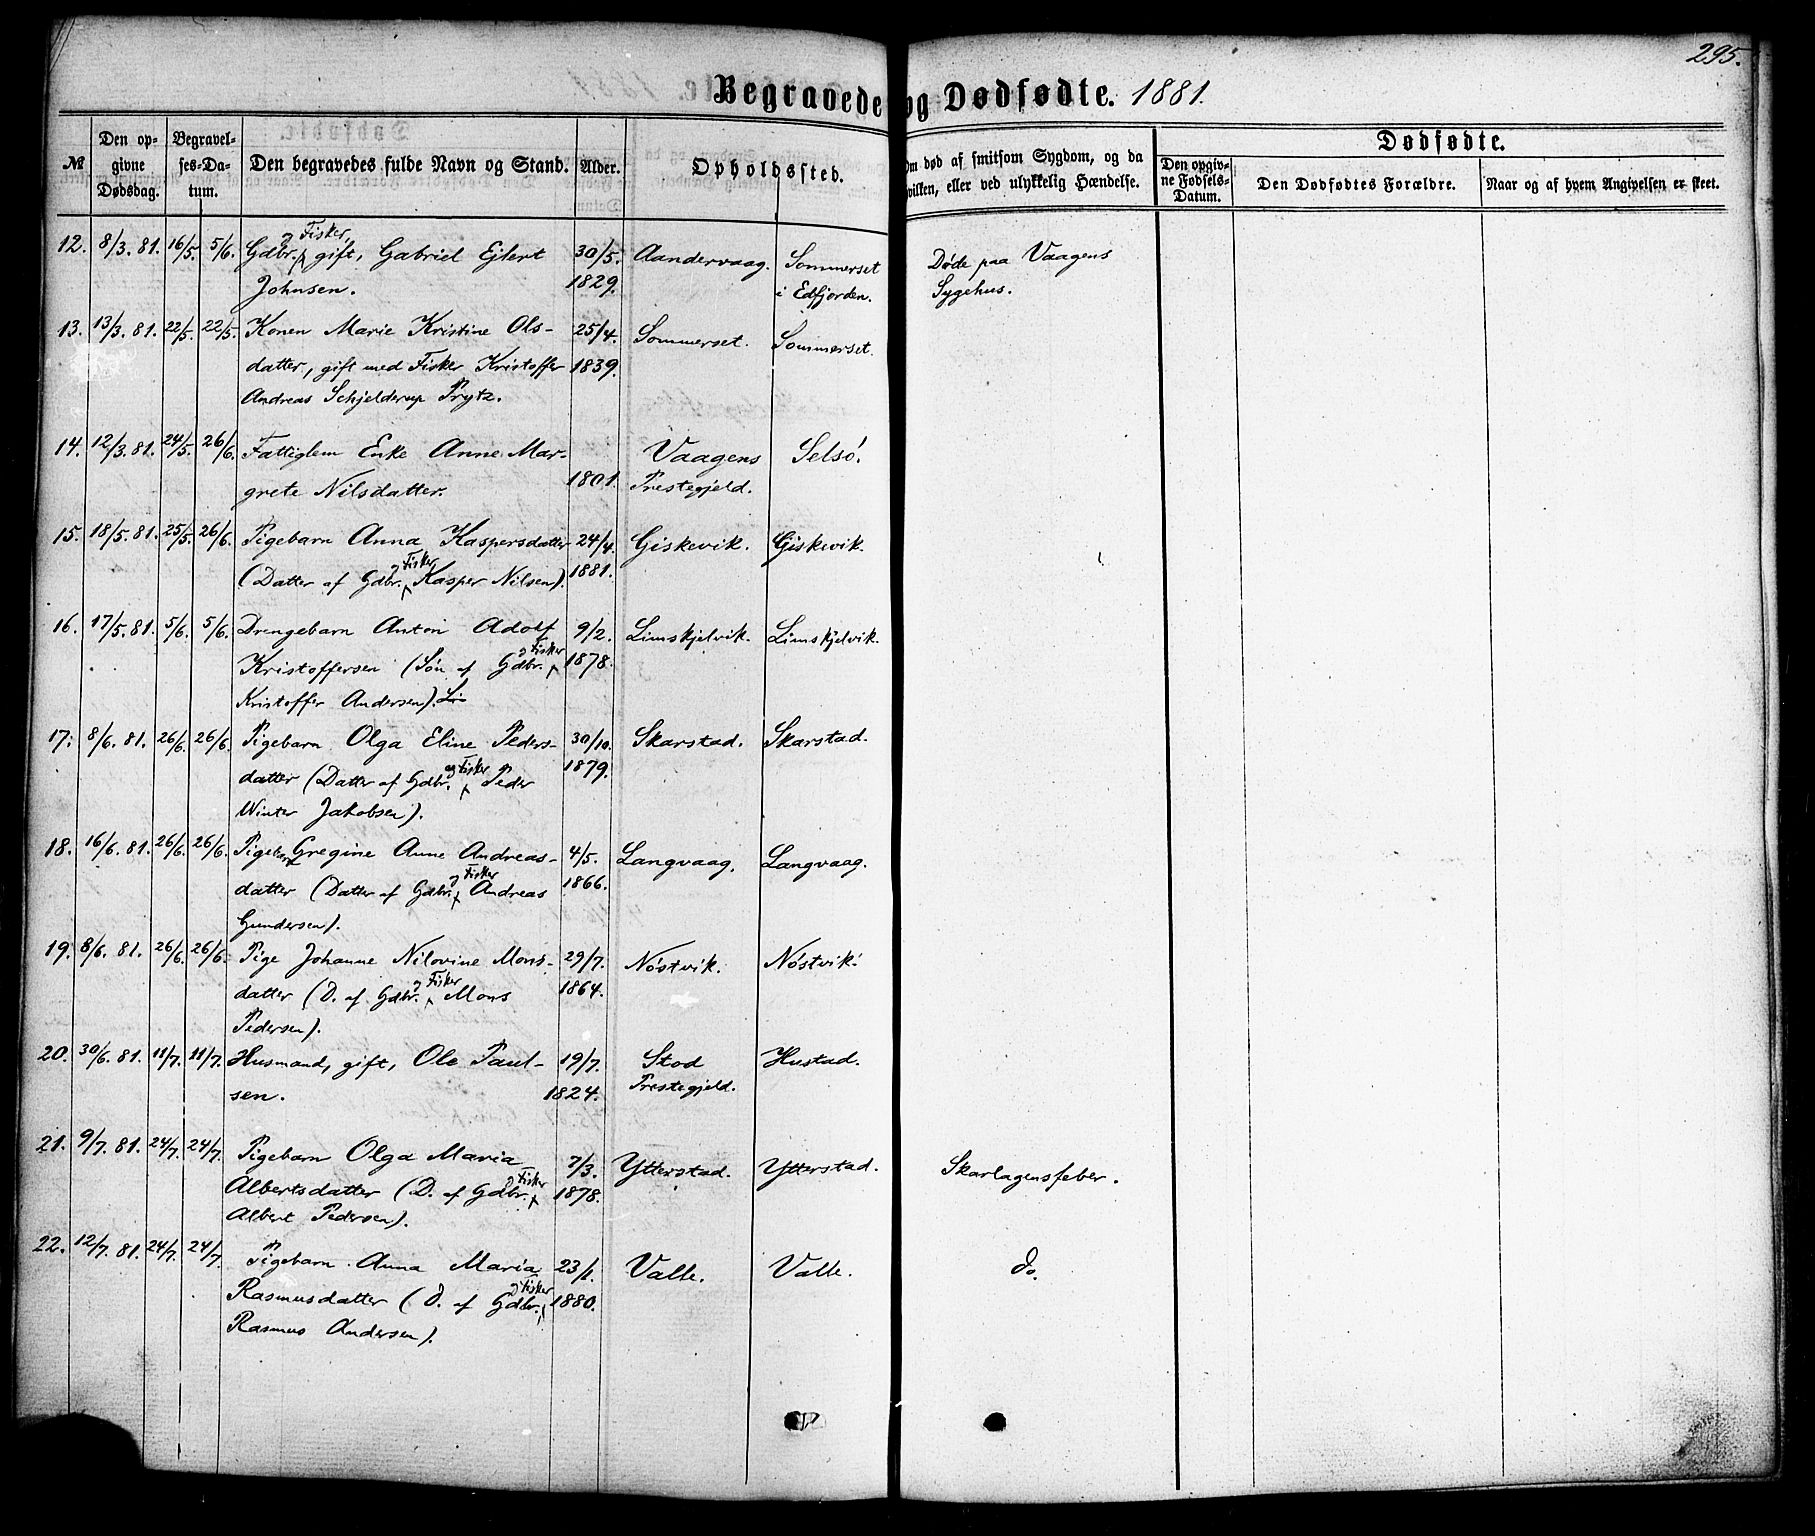 295.
Begravede og Dødfødte. 1881.
Dødfødte.
№
Den op-
givne
Dødsdag.
Begravel-
ses-Da-
tum.
Den begravedes fulde Navn og Stand.
Alder.
Opholdssted.
Om død af smitsom Sygdom, og da
hvilken, eller ved ulykkelig Hændelse.
Den opgiv-
ne Fødsels-
Datum.
Den Dødfødtes Forældre.
Naar og af hvem Angivelsen er skeet.
12. 8/3. 81. 16/5. 5/6. Gdbr. og Fisker, gift, Gabriel Ejlert 30/5. Aandervaag. Sommerset Døde paa Vaagens
Johnsen. 1829. i Edfjorden. Sygehus.
13. 13/3. 81. 22/5. 22/5. Konen Marie Kristine Ols- 25/4. Sommerset. Sommerset.
datter, gift med Fisker Kristoffer 1839.
Andreas Schjelderup Prytz.
14. 12/3. 81. 24/5. 26/6. Fattiglem Enke Anne Mar- Vaagens Selsø.
grete Nilsdatter. 1801. Prestegjeld.
15. 18/5. 81. 25/5. 26/6. Pigebarn Anna Kaspersdatter 24/4. Giskevik. Giskevik.
(Datter af Gdbr. og Fisker Kasper Nilsen). 1881.
16. 17/5. 81. 5/6. 5/6. Drengebarn Anton Adolf 9/2. Limskjelvik. Limskjelvik.
Kristoffersen (Søn af Gdbr. og Fisker 1878.
Kristoffer Andersen).
17. 8/6. 81. 26/6. 26/6. Pigebarn Olga Eline Peders- 30/10. Skarstad. Skarstad.
datter (Datter af Gdbr. og Fisker Peder 1879.
Winter Jakobsen).
18. 16/6. 81. 26/6. 26/6. Pigebarn Gregine Anne Andreas- 4/5. Langvaag. Langvaag.
datter (Datter af Gdbr. og Fisker Andreas 1866.
Gundersen).
19. 8/6. 81. 26/6. 26/6. Pige Johanne Nilovine Mons- 29/7. Nøstvik. Nøstvik.
datter (D. af Gdbr. og Fisker Mons 1864.
Pedersen).
20. 30/6. 81. 11/7. 11/7. Husmand, gift, Ole Paul- 19/7. Stod Hustad.
sen. 1824. Prestegjeld.
21. 9/7. 81. 24/7. 24/7. Pigebarn Olga Maria 7/3. Ytterstad. Ytterstad. Skarlagensfeber.
Albertsdatter (D. af Gdbr. og Fisker 1878.
Albert Pedersen).
22. 12/7. 81. 24/7. 24/7. Pigebarn Anna Maria 23/1. Valle. Valle. do.
Rasmusdatter (D. af Gdbr. og Fisker 1880.
Rasmus Andersen).